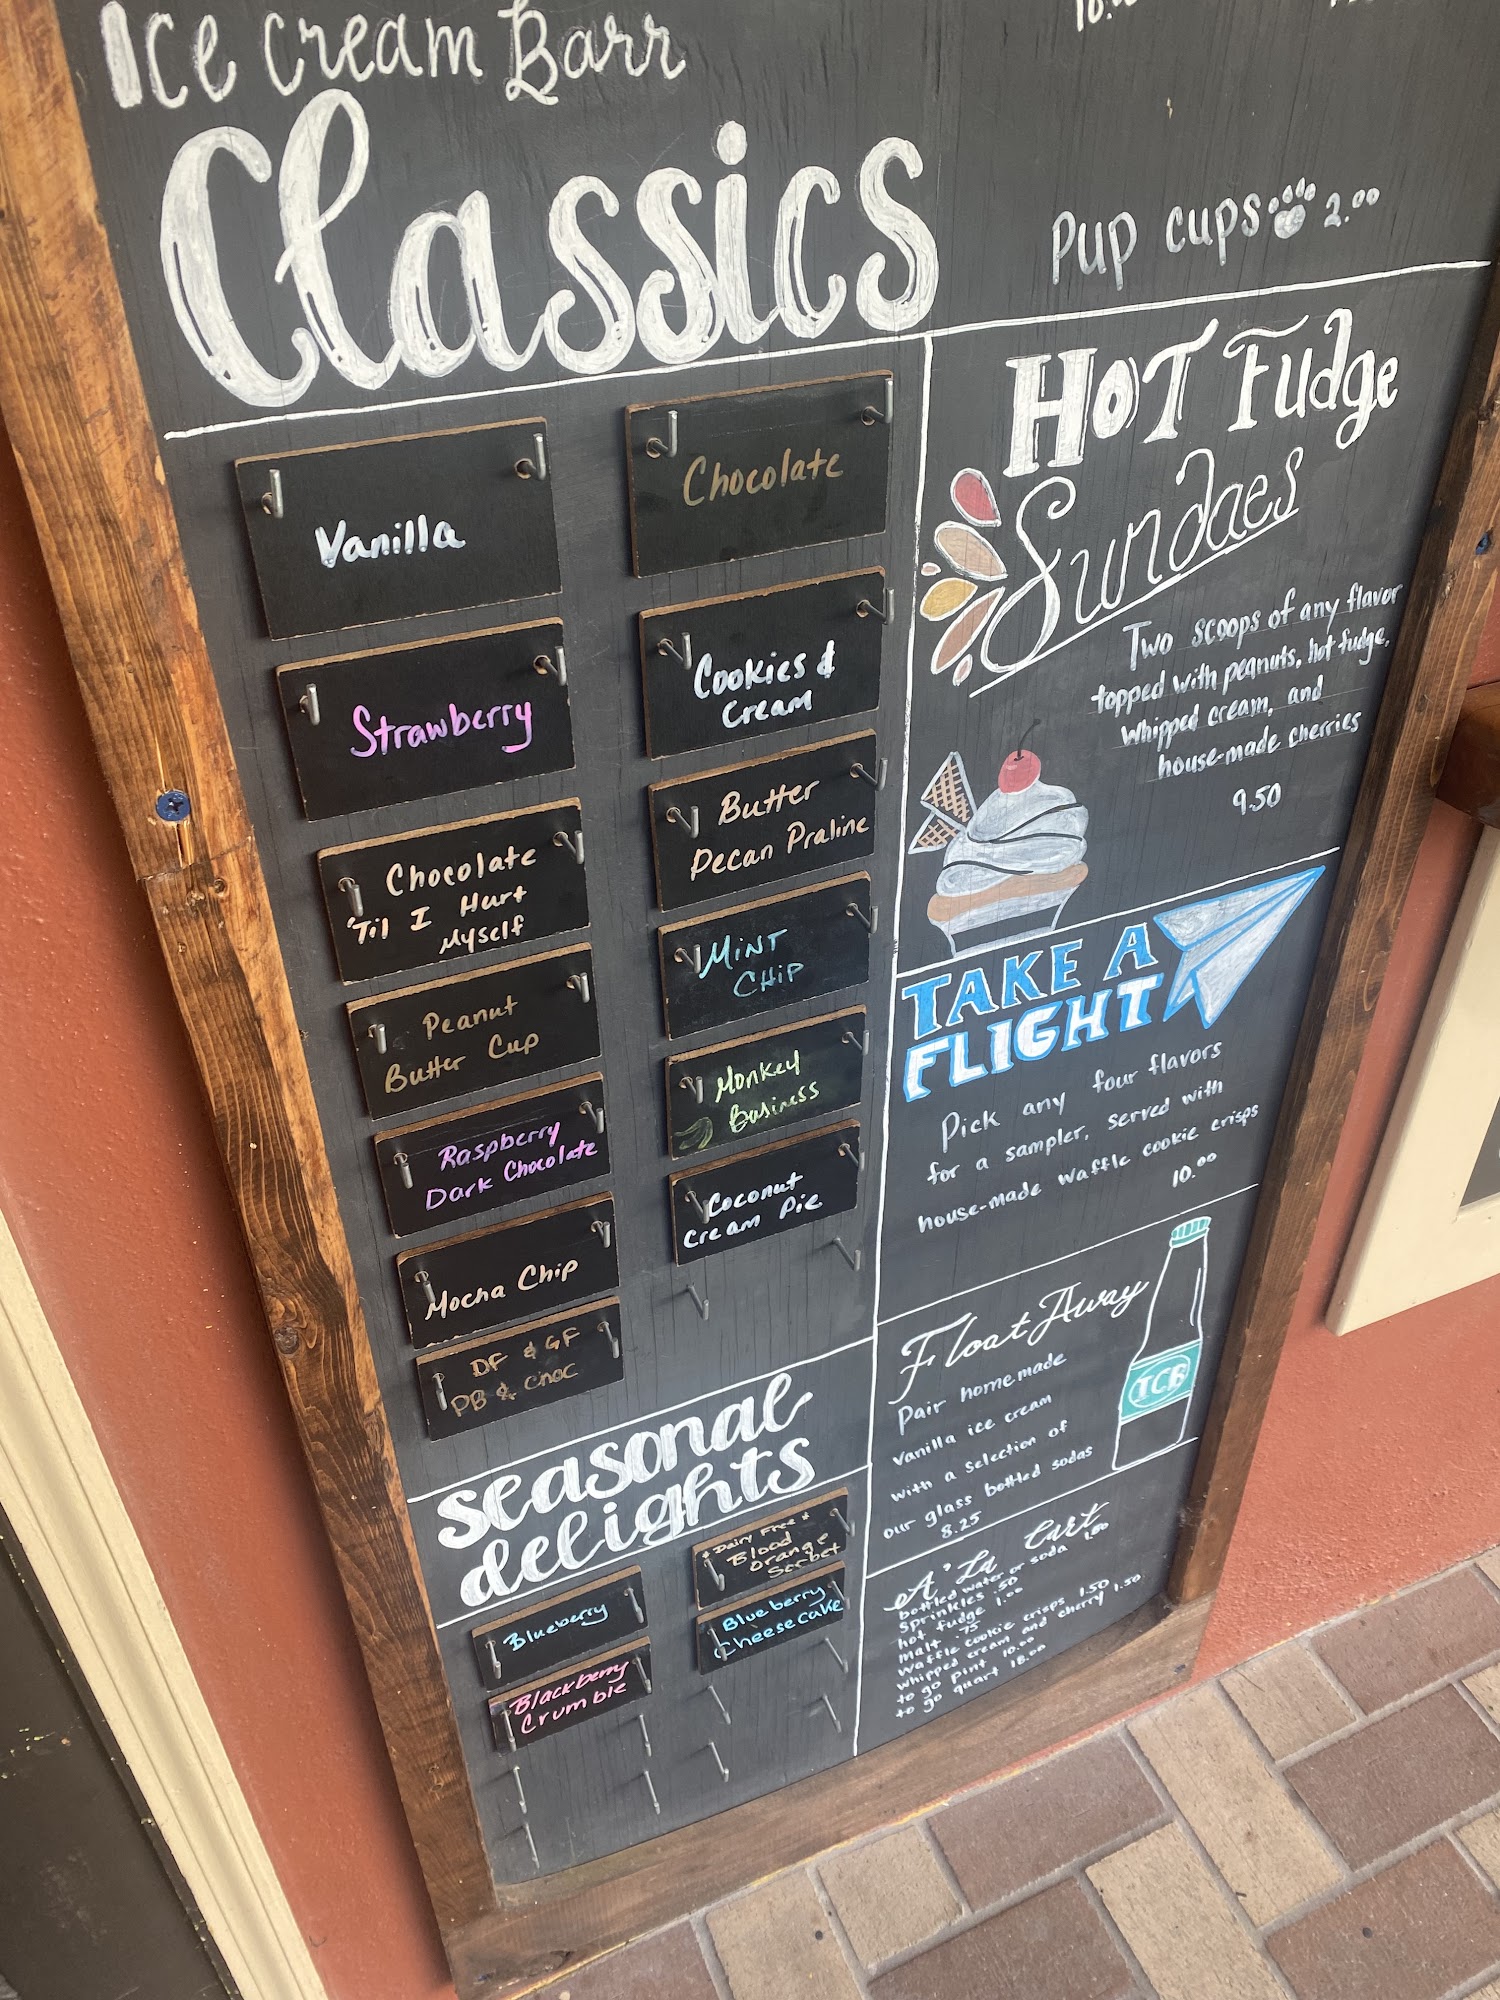 Ice Cream Barr
Classics
Pup cups 2.00
Vanilla
Chocolate
Strawberry
Cookies &
Cream
Chocolate
'Til I Hurt
Myself
Butter
Pecan Praline
Peanut
Butter Cup
Mint
Chip
Raspberry
Dark Chocolate
Monkey
Business
Mocha Chip
Coconut
Cream Pie
DF & GF
PB & Choc
seasonal
delights
Blueberry
* Dairy Free *
Blood
Orange
Sorbet
Blackberry
Crumble
Blueberry
Cheesecake
HOT Fudge
Sundaes
Two scoops of any flavor
topped with peanuts, hot fudge,
whipped cream, and
house-made cherries
9.50
TAKE A
FLIGHT
Pick any four flavors
for a sampler, served with
house-made waffle cookie crisps
10.00
Float Away
Pair homemade
vanilla ice cream
with a selection of
our glass bottled sodas
8.25
ICB
A'La Cart
bottled water or soda 1.00
sprinkles .50
hot fudge 1.00
malt .75
waffle cookie crisps 1.50
whipped cream and cherry 1.50
to go pint 10.00
to go quart 18.00